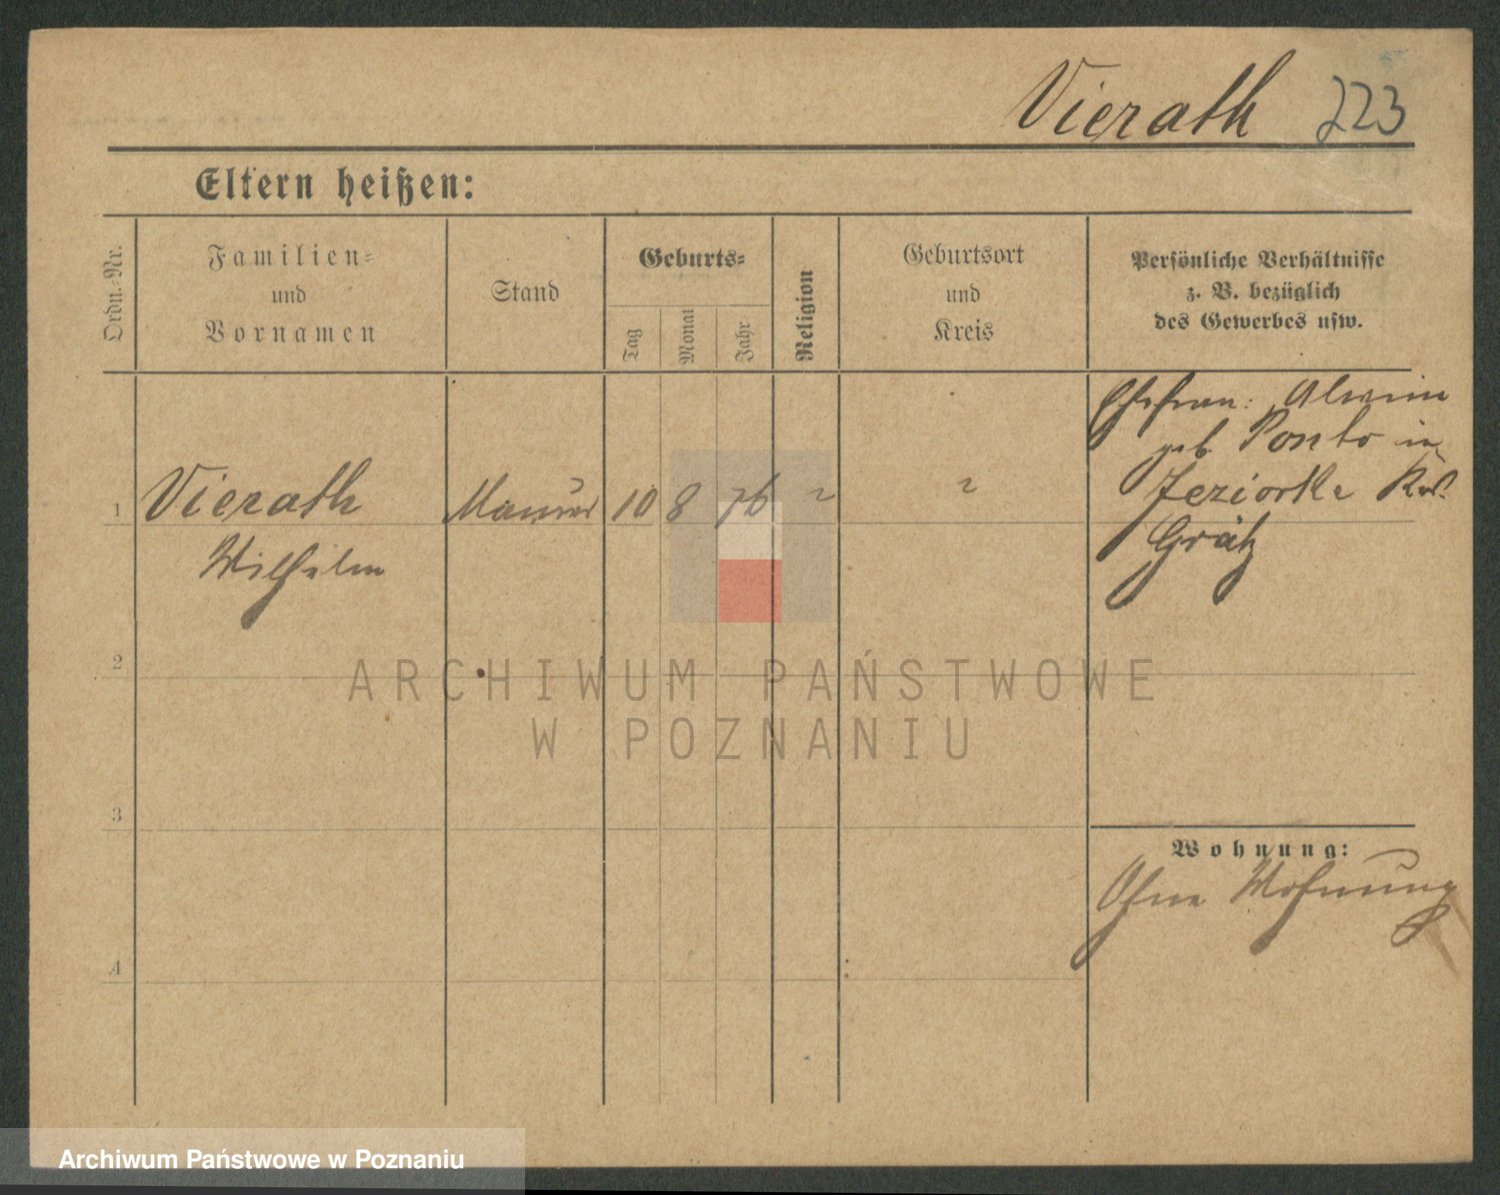 Vierath 223
Eltern heißen:
Ordn.-Nr.
Familien-
und
Vornamen
Stand
Geburts-
Tag
Monat
Jahr
Religion
Geburtsort
und
Kreis
Persönliche Verhältnisse
z. B. bezüglich
des Gewerbes usw.
1 Vierath Maurer 10 8 76 ? ?
Wilhelm
Ehefrau: Alwine
geb. Ponto in
Jeziorki Krs.
Grätz
2
3
4
Wohnung:
Ohne Wohnung
ARCHIWUM PAŃSTWOWE
W POZNANIU
Archiwum Państwowe w Poznaniu